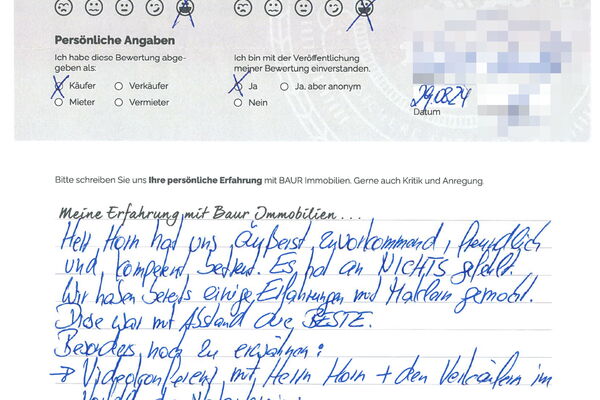 Persönliche Angaben
Ich habe diese Bewertung abge-
geben als:
Käufer
Verkäufer
Mieter
Vermieter
Ich bin mit der Veröffentlichung
meiner Bewertung einverstanden.
Ja
Ja, aber anonym
Nein
29.08.24
Datum
Bitte schreiben Sie uns Ihre persönliche Erfahrung mit BAUR Immobilien. Gerne auch Kritik und Anregung.
Meine Erfahrung mit Baur Immobilien...
Herr Horn hat uns äußerst zuvorkommend, freundlich
und kompetent betreut. Es hat an NICHTS gefehlt.
Wir haben bereits einige Erfahrungen mit Maklern gemacht.
Diese war mit Abstand die BESTE.
Besonders noch zu erwähnen:
→ Videokonferenz mit Herrn Horn + den Verkäufern im